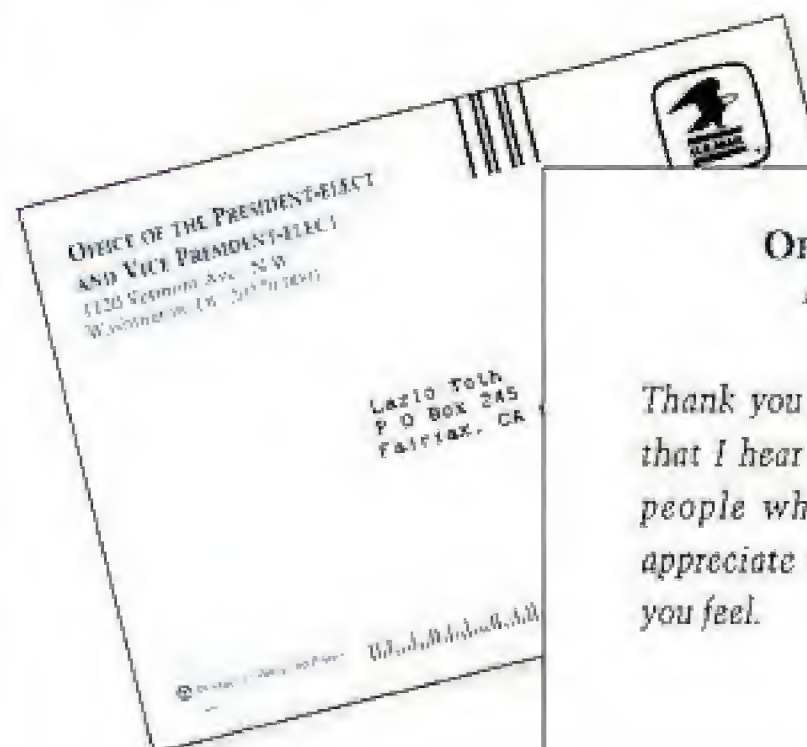 OFFICE OF THE PRESIDENT-ELECT
AND VICE PRESIDENT-ELECT
1120 Vermont Ave., N.W.
Washington, DC
Lazlo Toth
P O Box 245
Fairfax, CA
U.S. MAIL
Thank you
that I hear
people wh
appreciate
you feel.